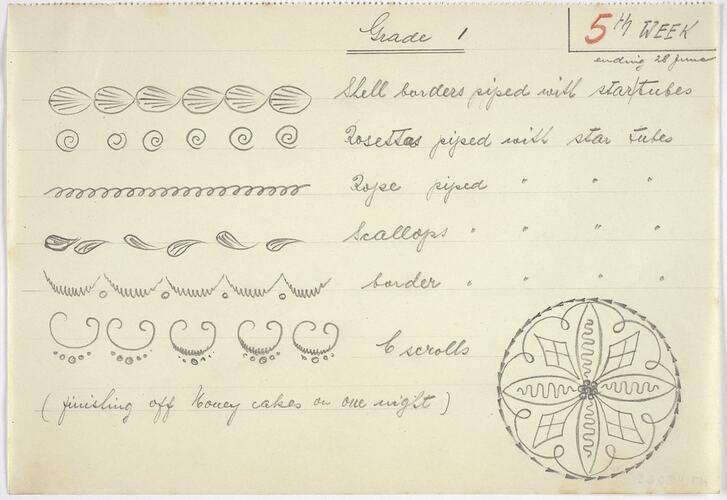 Grade 1
5TH WEEK
ending 28 June
Shell borders piped with star tubes
Rosettes piped with star tubes
Rope piped " " "
Scallops " " " "
border " " " "
C scrolls
(finishing off Honey cakes on one night)